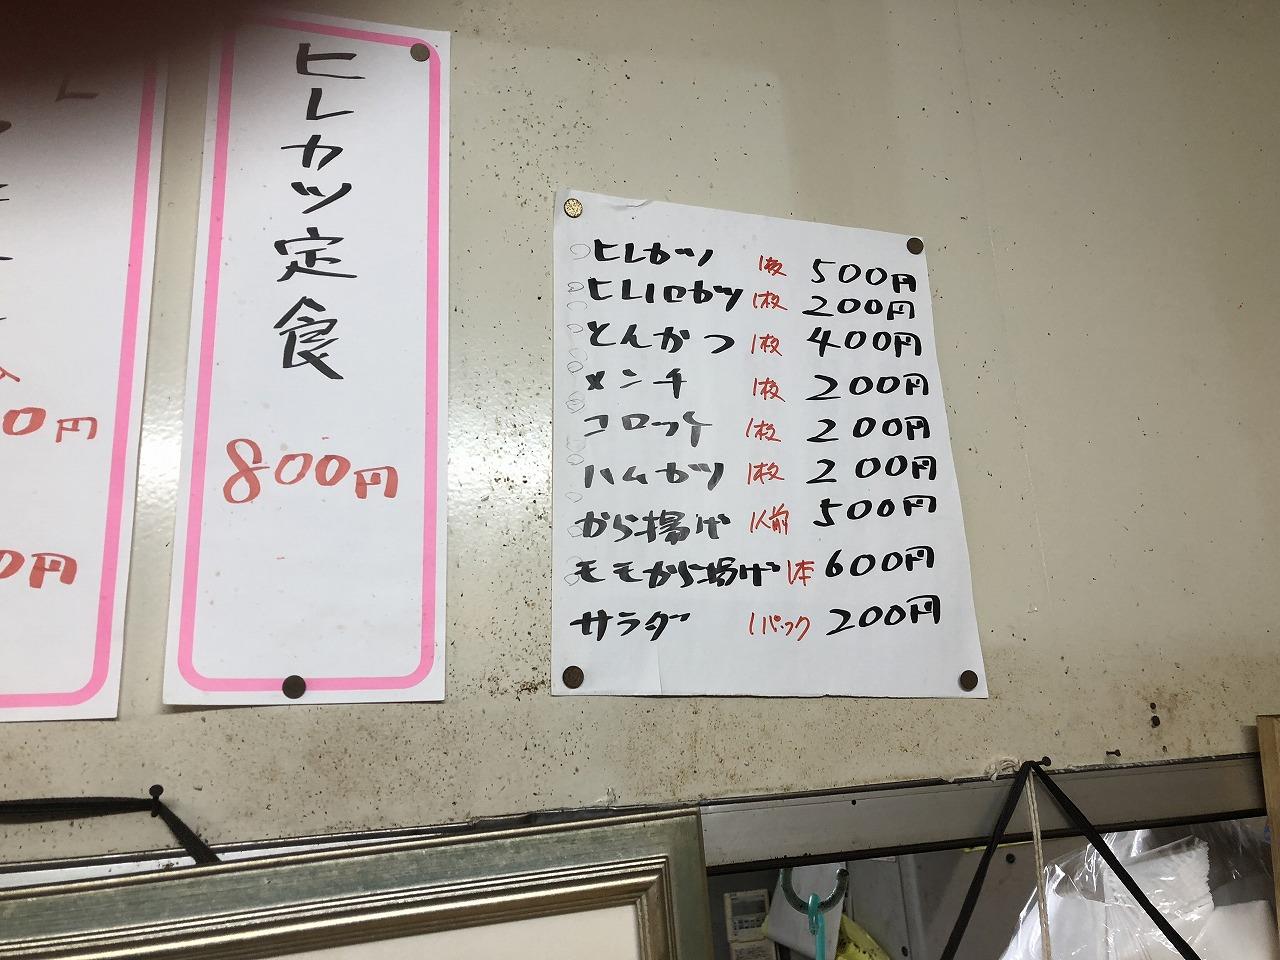 ヒレカツ定食
800円
0円
0円
ヒレカツ 1枚 500円
ヒレ1口カツ 1枚 200円
とんかつ 1枚 400円
メンチ 1枚 200円
コロッケ 1枚 200円
ハムカツ 1枚 200円
から揚げ 1人前 500円
モモから揚げ 1本 600円
サラダ 1パック 200円